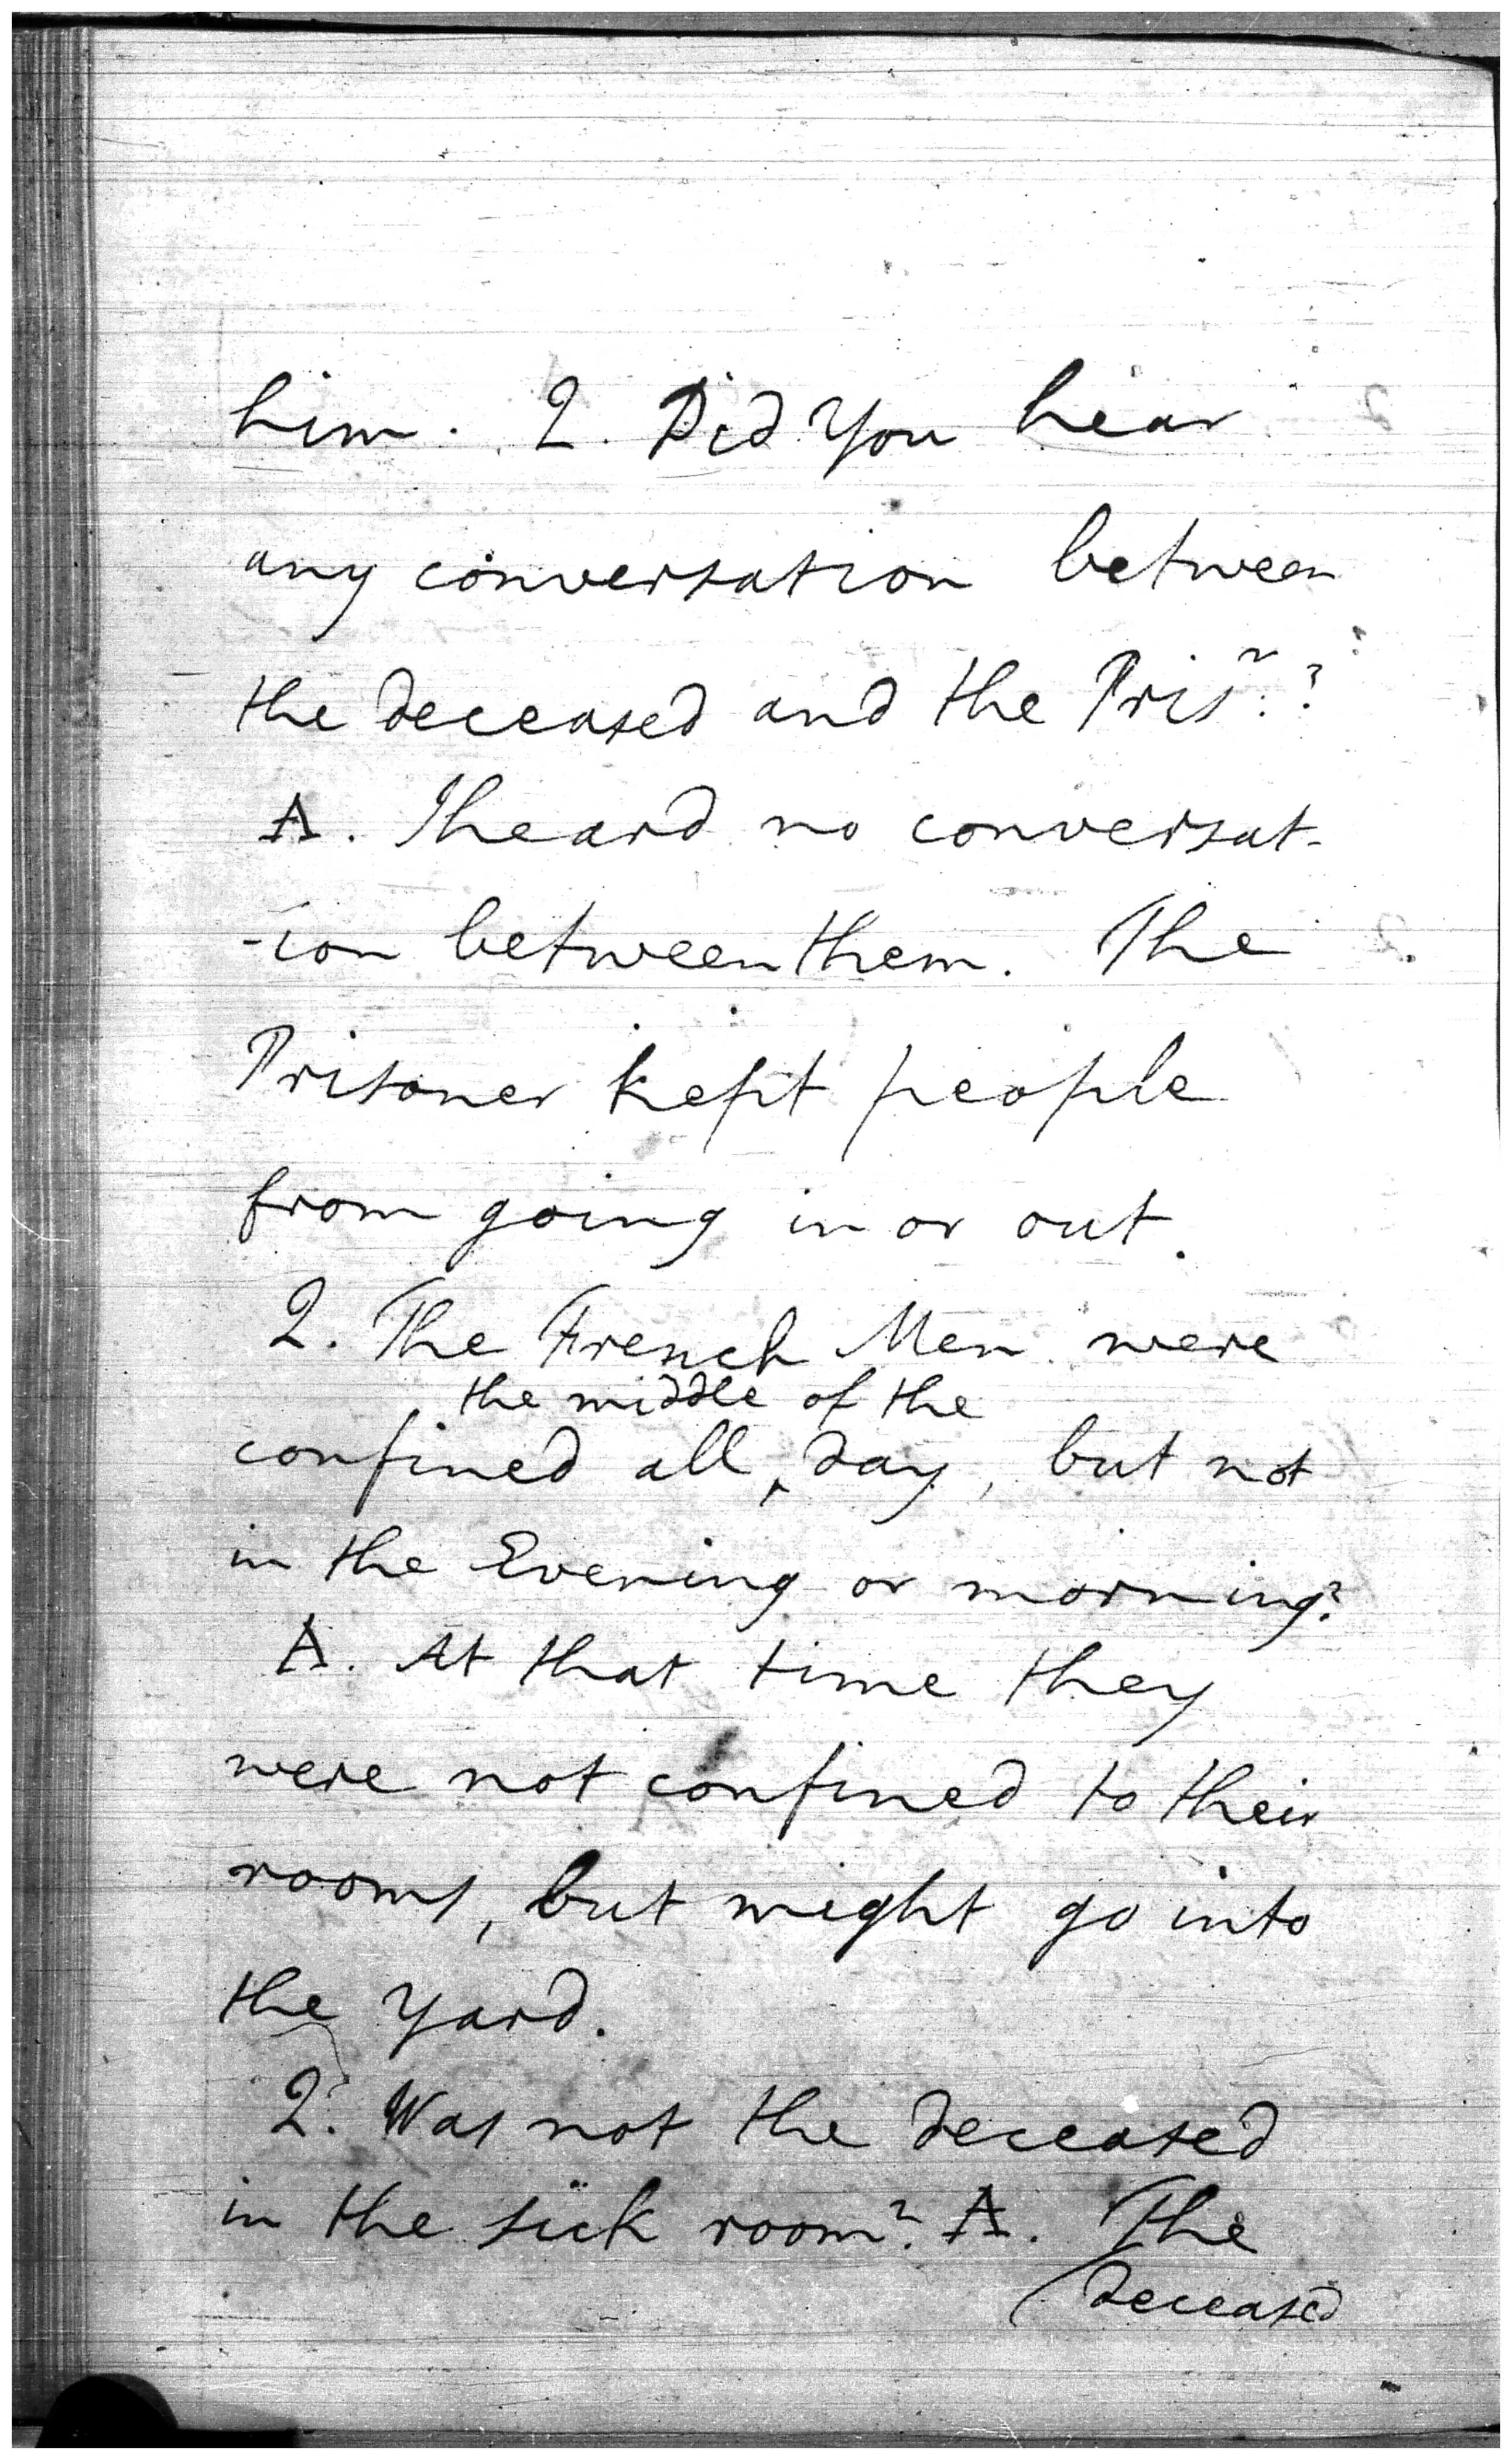 him. Q. Did You hear
any conversation between
the deceased and the Prisr.?
A. I heard no conversat-
-ion between them. The
Prisoner kept people
from going in or out.
Q. The French Men were
the middle of the
confined all ‸ day, but not
in the Evening or morning?
A. At that time they
were not confined to their
rooms, but might go into
the yard.
Q. Was not the deceased
in the sick room? A. The
deceased